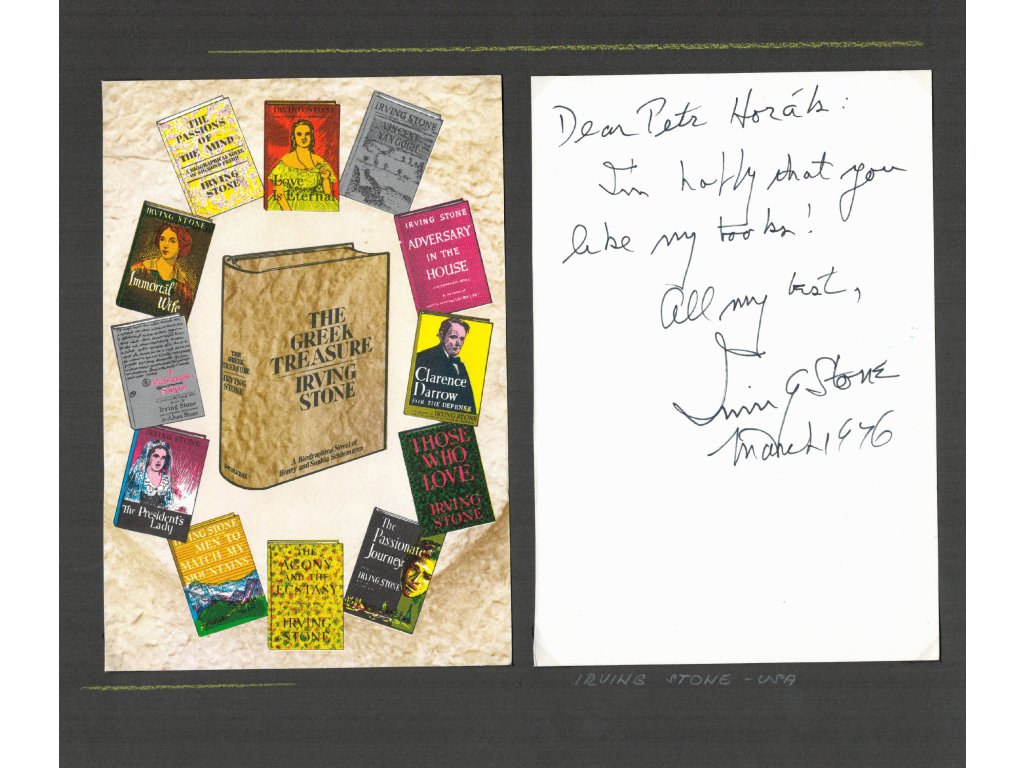 THE
PASSIONS
OF
THE MIND
A BIOGRAPHICAL NOVEL
OF SIGMUND FREUD
IRVING
STONE
IRVING STONE
Love
is Eternal
IRVING STONE
VINCENT
VAN GOGH
IRVING STONE
ADVERSARY
IN THE
HOUSE
Clarence
Darrow
FOR THE DEFENSE
IRVING STONE
THOSE
WHO
LOVE
IRVING
STONE
The
Passionate
Journey
IRVING STONE
THE
AGONY
AND THE
ECSTASY
IRVING
STONE
IRVING STONE
MEN TO
MATCH MY
MOUNTAINS
The President's
Lady
Irving Stone
IRVING STONE
Immortal
Wife
THE
GREEK
TREASURE
IRVING
STONE
THE
GREEK
TREASURE
IRVING
STONE
DOUBLEDAY
A Biographical Novel of
Henry and Sophia Schliemann
Dear Petr Horák:
I'm happy that you
like my books!
All my best,
Irving Stone
March 1976
IRVING STONE - USA